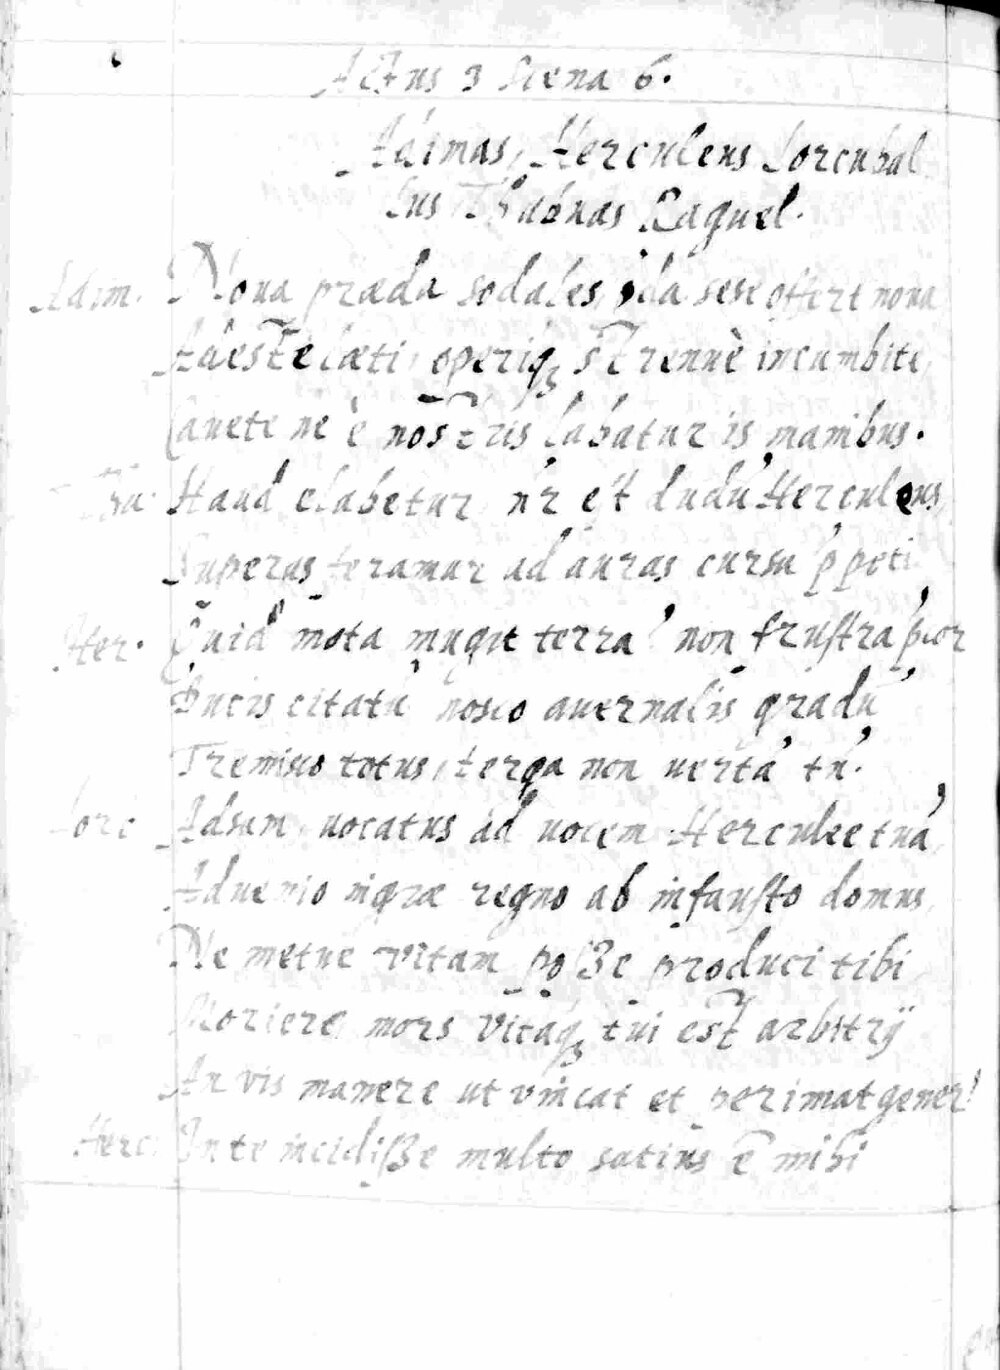 Actus 3 Scena 6.
Adimas, Herculeus Lorcubal
sus Thabuas Raguel.
Adim. Noua præda sodales, sese offert noua
Adeste læti, operiq; strenuè incumbite,
Cauete ne è nostris labatur is manibus.
Haud elabetur, nr̄ est ludū Herculeus,
Superas feramur ad auras cursu ppeti
Her. Quid mota mugit terra? non frustra
Ducis citatū nosco auernalis gradū
Tremisco totus, terga non uertā tn̄.
Lorc Adsum uocatus ad uocem Herculee tuā,
Aduenio nigræ regno ab infausto domus,
Ne metue vitam posse produci tibi
Moriere, mors vitaq; tui est arbitrij
An vis manere ut vincat et perimat gener?
Herc. In te incidisse multo satius ē mihi